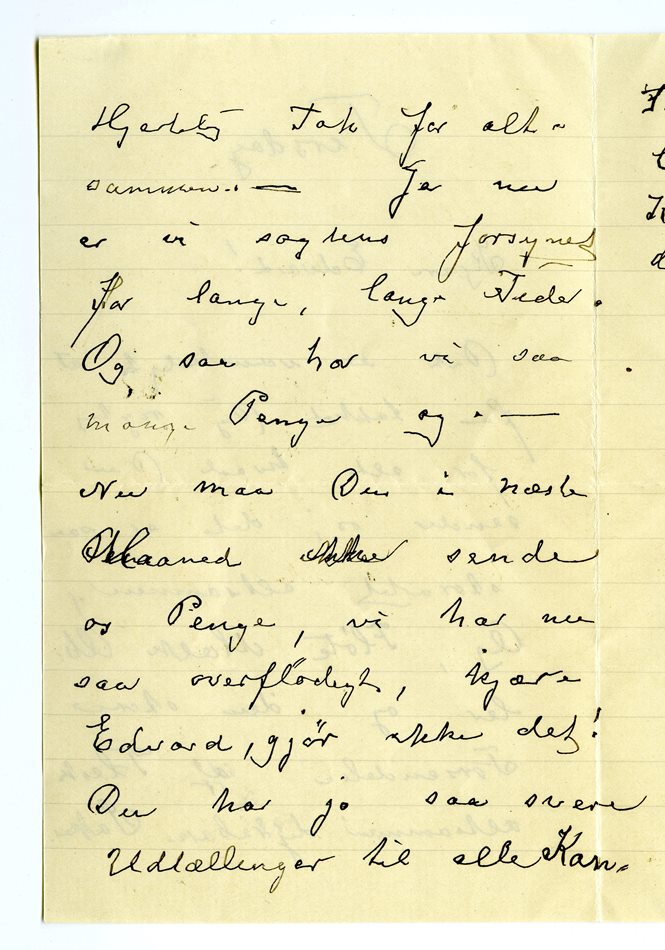 Hjertelig Tak for alt-
sammen. — Ja nu
er vi sagtens forsynet
for lange, lange Tider.
Og saa har vi saa
mange Penge og. —
Nu maa Du i næste
Maaned ikke sende
os Penge, vi har nu
saa overflødigt, kjære
Edvard, gjör ikke det!
Du har jo saa svære
Udtællinger til alle Kan-